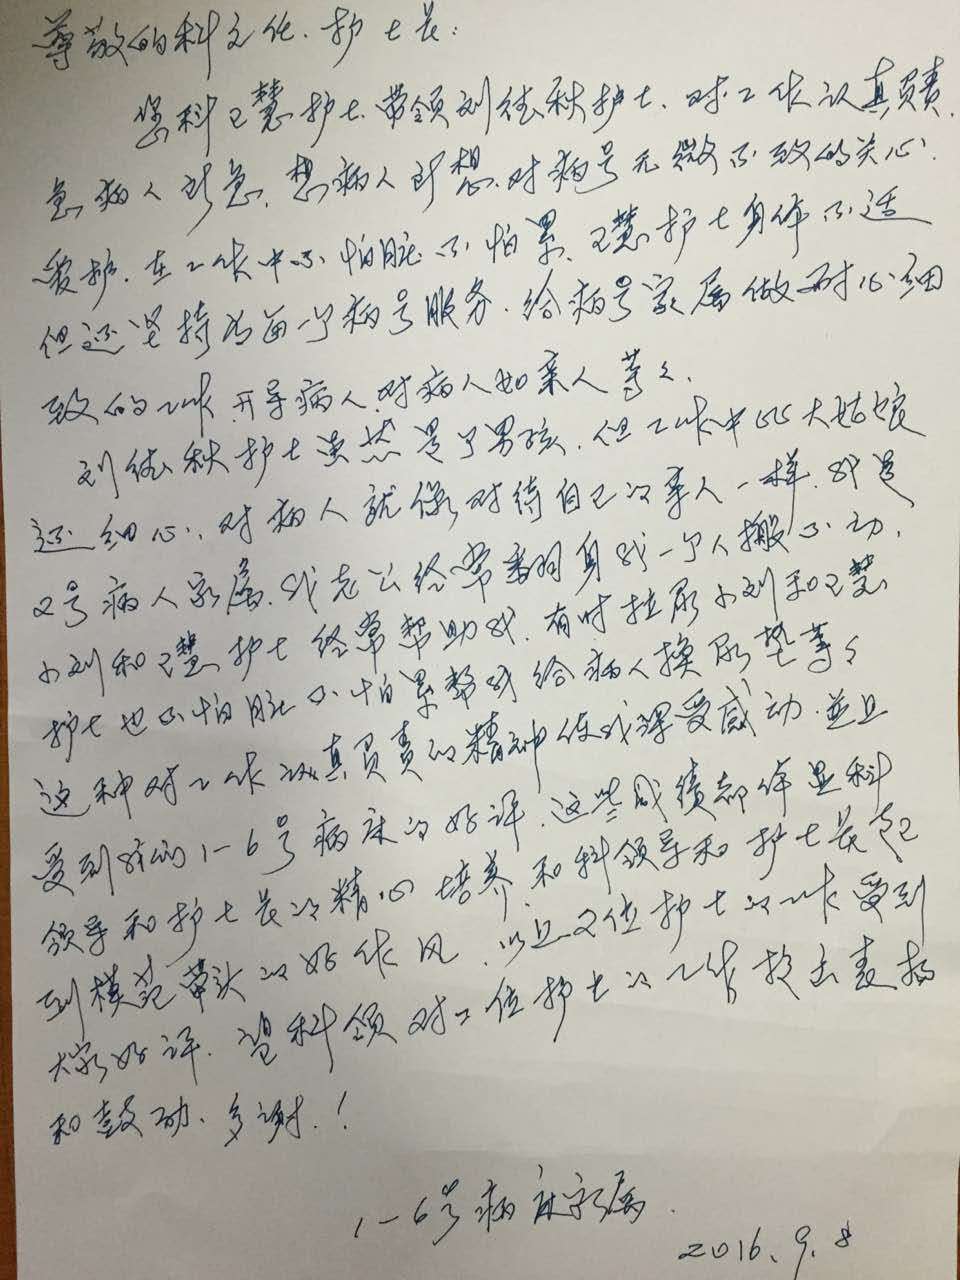 尊敬的科主任、护士长:
您科王慧护士带领刘继秋护士,对工作认真负责,
急病人所急,想病人所想,对病号无微不致的关心
爱护,在工作中不怕脏不怕累、王慧护士身体不适
但还坚持为每一个病号服务,给病号家属做耐心细
致的工作,开导病人,对病人如亲人等々、
刘继秋护士虽然是个男孩,但工作中比大姑娘
还细心,对病人就像对待自己的亲人一样,我是
2号病人家属,我老公经常翻身我一个人搬不动,
小刘和王慧护士经常帮助我,有时拉尿小刘和王慧
护士也不怕脏不怕累帮我给病人换尿垫等々
这种对工作认真负责的精神使我深受感动,并且
受到我们1-6号病床的好评,这些成绩都体显科
领导和护士长的精心培养和科领导和护士长起
到模范带头的好作风,以上2位护士的工作受到
大家好评,望科领对二位护士的工作提出表扬
和鼓励、多谢!
1-6号病床家属.
2016.9.8